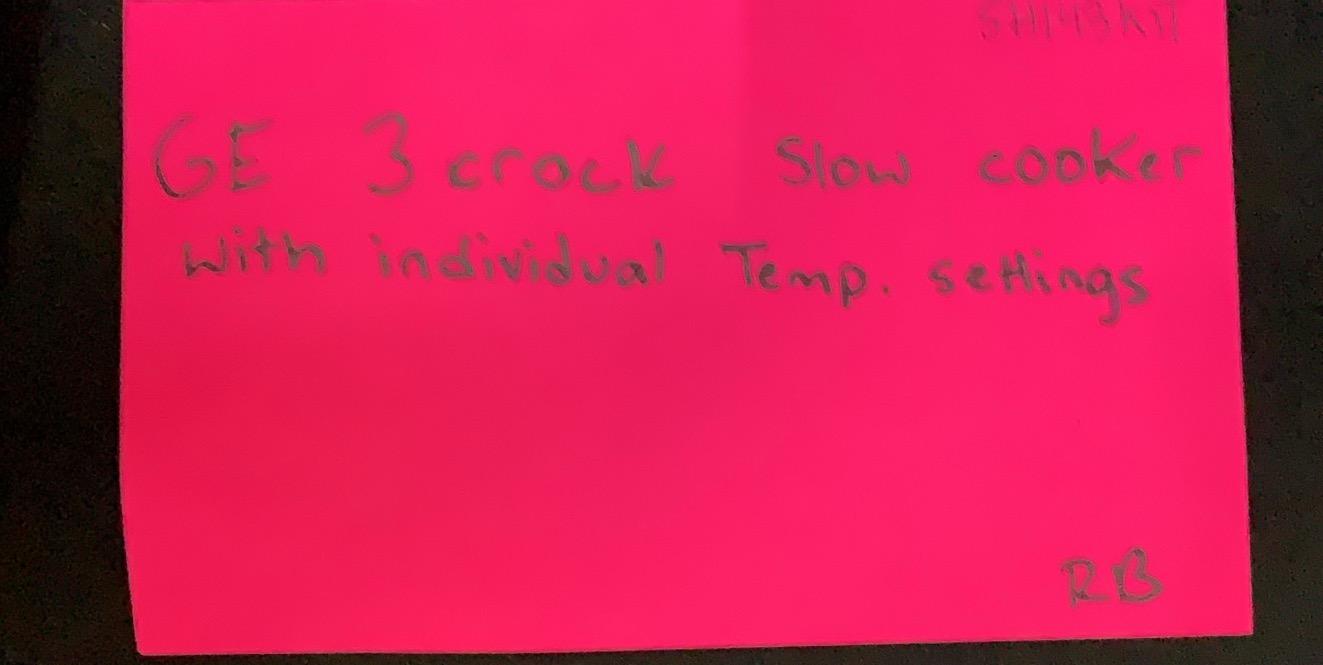 GE 3 crock Slow cooker
with individual Temp. settings
RB